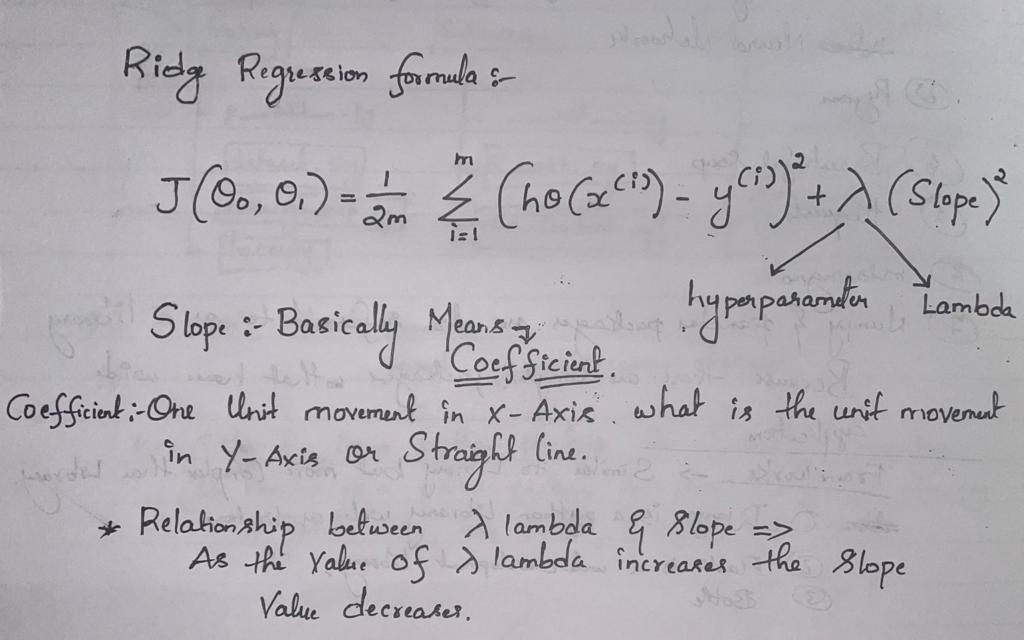 Ridge Regression formula :-
J(θ₀, θ₁) = 1/2m Σ i=1 m (hθ(x⁽ⁱ⁾) - y⁽ⁱ⁾)² + λ (Slope)²
hyperparameter Lambda
Slope :- Basically Means →
Coefficient.
Coefficient :- One Unit movement in X-Axis. what is the unit movement
in Y-Axis or Straight line.
* Relationship between λ lambda & Slope =>
As the Value of λ lambda increases the Slope
Value decreases.